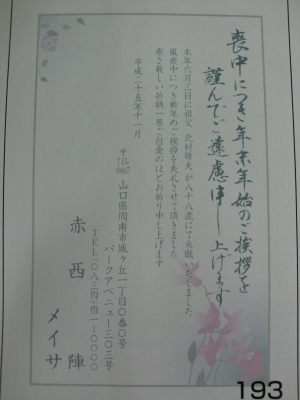 喪中につき年末年始のご挨拶を
謹んでご遠慮申し上げます
本年六月三日に祖父 北村晴夫が八十八歳にて永眠いたしました
服喪中につき新年のご挨拶を失礼させて頂きました
寒さ厳しい折柄一層ご自愛のほどお祈り申し上げます
平成二十五年十一月
〒745-0807 山口県周南市城ヶ丘一丁目〇番〇号
パークアベニュー三〇三号
TEL(〇八三四)四一-〇〇〇〇
赤西 陣
メイサ
193